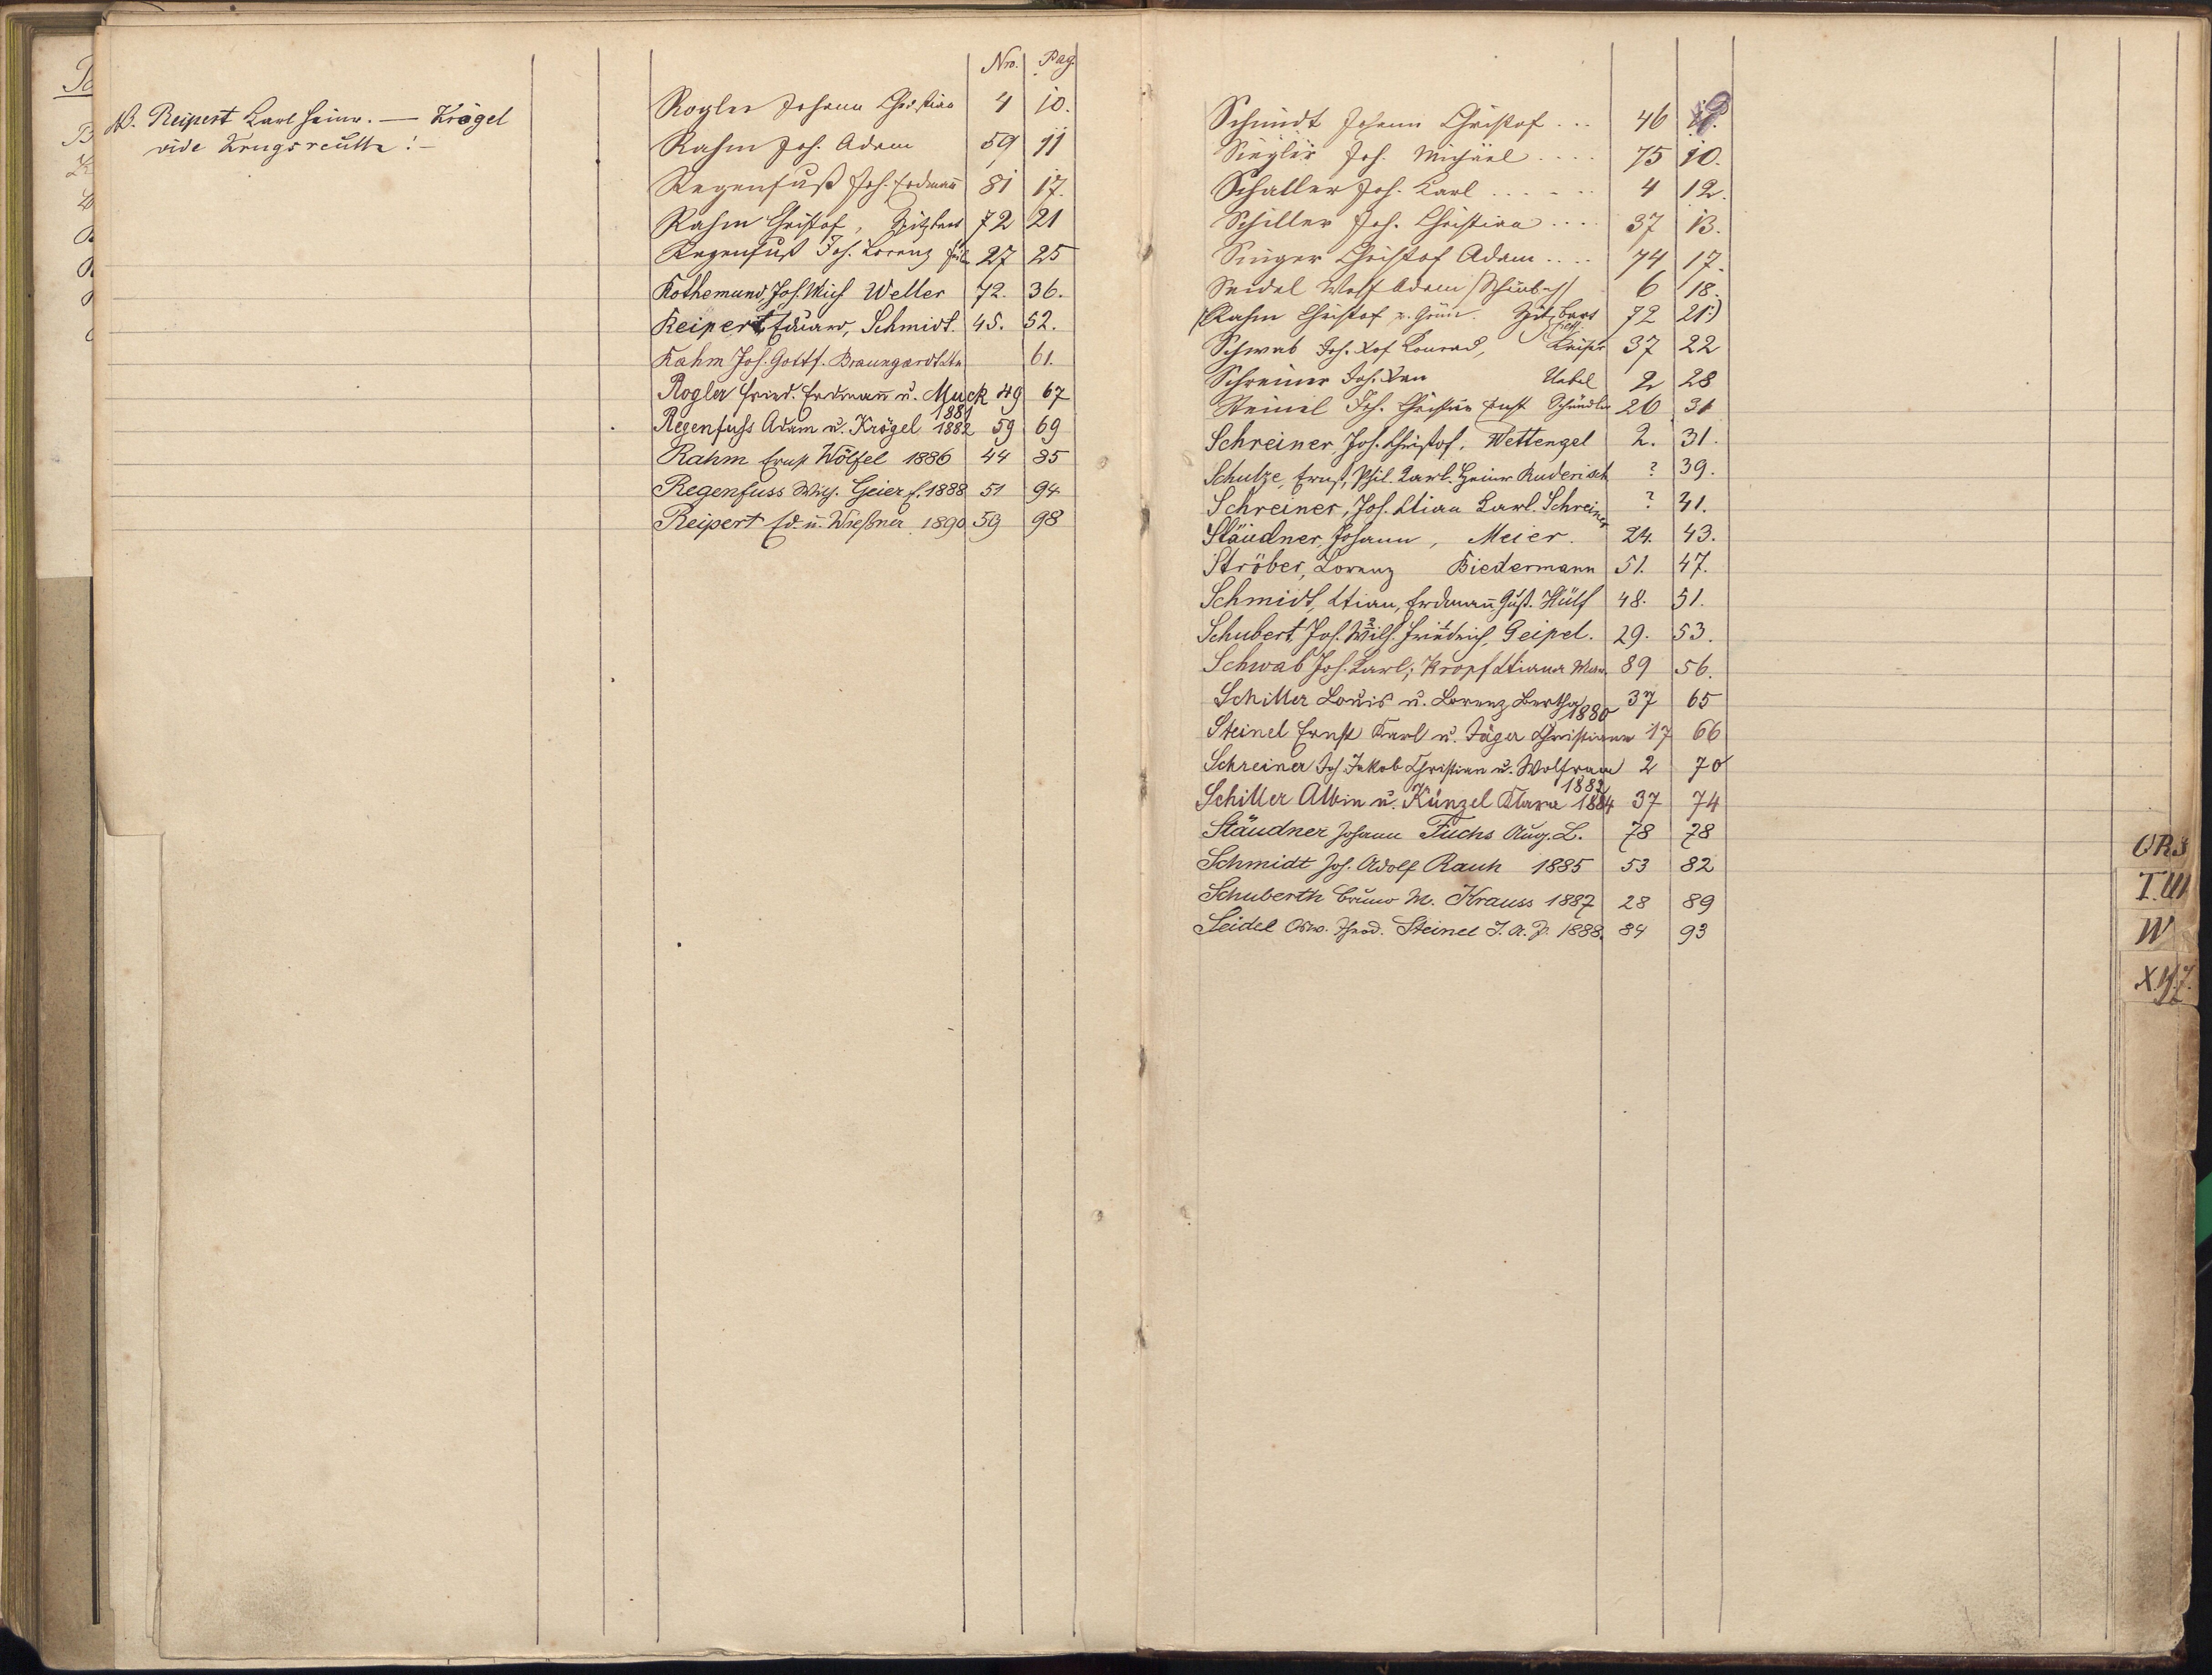 Nro. Pag.
NB. Reipert Karl Heinr. — Krögel
vide Krugsreuth! –
Rogler Johann Christian 4 10.
Rahm Joh. Adam 59 11
Regenfuß Joh. Erdmañ 81 17.
Rahm Christof, Spitzbart 72 21
Regenfuß Joh. Lorenz 27 25
Rothemund, Joh. Mich Weller 72. 36.
Reipert, Eduard, Schmidt. 45. 52.
Rahm Joh. Gottf. Braungardt 61.
Rogler Fried. Erdmañ u. Muck 49 67
1881
Regenfuss Adam u. Krögel 1882 59 69
Rahm Ernst Wölfel 1886 44 85
Regenfuss Wilh. Geier f. 1888 51 94
Reipert Ed. u. Wießner 1890 59 98
Schmidt Johann Christof ... 46
Siegler Joh. Michael .... 75 10.
Schaller Joh. Karl ..... 4 12.
Schiller Joh. Christian .... 37 13.
Singer Christof Adam .... 74 17.
Seidel Wolf Adam 6 18.
Rahm Christof v. Grün. Spitzbart 72 21:)
Schwab Joh. Xof Konrad, 37 22
Schreiner Joh. Uebel 2 28
Steinel Joh. Christian Ernst Schindler 26 31
Schreiner, Joh. Christof, Wettengel 2. 31.
Schulze, Ernst, Phil. Karl. Heinr Ruderisch ? 39.
Schreiner, Joh. Xtian Karl. Schreiner ? 41.
Stäudner, Johann, Meier. 24. 43.
Ströber, Lorenz Biedermann 51. 47.
Schmidt, Xtian, Erdmañ Gust. Hülf 48. 51.
Schubert, Joh. Wilh. Friedrich, Geipel. 29. 53.
Schwab Joh. Karl; Kropf Xtiana 89 56.
Schiller Louis u. Lorenz Bertha 37 65
1880
Steinel Ernst Karl u. Jäger Christiana 17 66
Schreiner Joh. Jakob Christian u. Wolfram 2 70
1882
Schiller Albin u. Künzel Klara 1884 37 74
Stäudner Johann Fuchs Aug. L. 78 78
Schmidt Joh. Adolf Rauh 1885 53 82
Schuberth Bruno M. Krauss 1887 28 89
Seidel Osw. Theod. Steinel J. A. P. 1888. 84 93
QRS
T.U.
W
X.Y.Z.